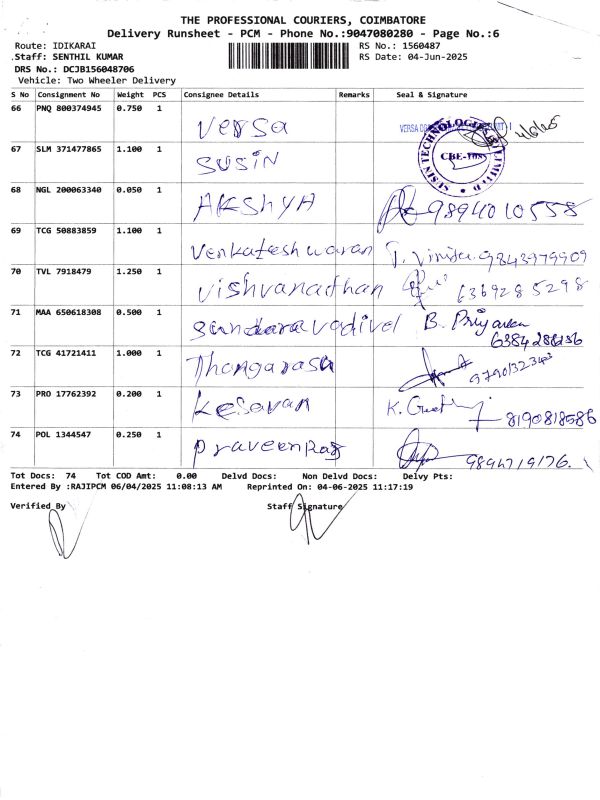 THE PROFESSIONAL COURIERS, COIMBATORE
Delivery Runsheet - PCM - Phone No.:9047080280 - Page No.:6
Route: IDIKARAI RS No.: 1560487
Staff: SENTHIL KUMAR RS Date: 04-Jun-2025
DRS No.: DCJB156048706
Vehicle: Two Wheeler Delivery
S No Consignment No Weight PCS Consignee Details Remarks Seal & Signature
66 PNQ 800374945 0.750 1 Versa 4/6/25
67 SLM 371477865 1.100 1 SUSIN SUSIN TECHNOLOGIES CBE-
68 NGL 200063340 0.050 1 AKSHYA 9894010558
69 TCG 50883859 1.100 1 Venkateshwaran 9843979909
70 TVL 7918479 1.250 1 Vishvanadhan 6369285298
71 MAA 650618308 0.500 1 Sundaravadivel B.
72 TCG 41721411 1.000 1 Thangarasu
73 PRO 17762392 0.200 1 Kesavan K. 8190818586
74 POL 1344547 0.250 1 Praveenraj
Tot Docs: 74 Tot COD Amt: 0.00 Delvd Docs: Non Delvd Docs: Delvy Pts:
Entered By :RAJIPCM 06/04/2025 11:08:13 AM Reprinted On: 04-06-2025 11:17:19
Verified By Staff Signature